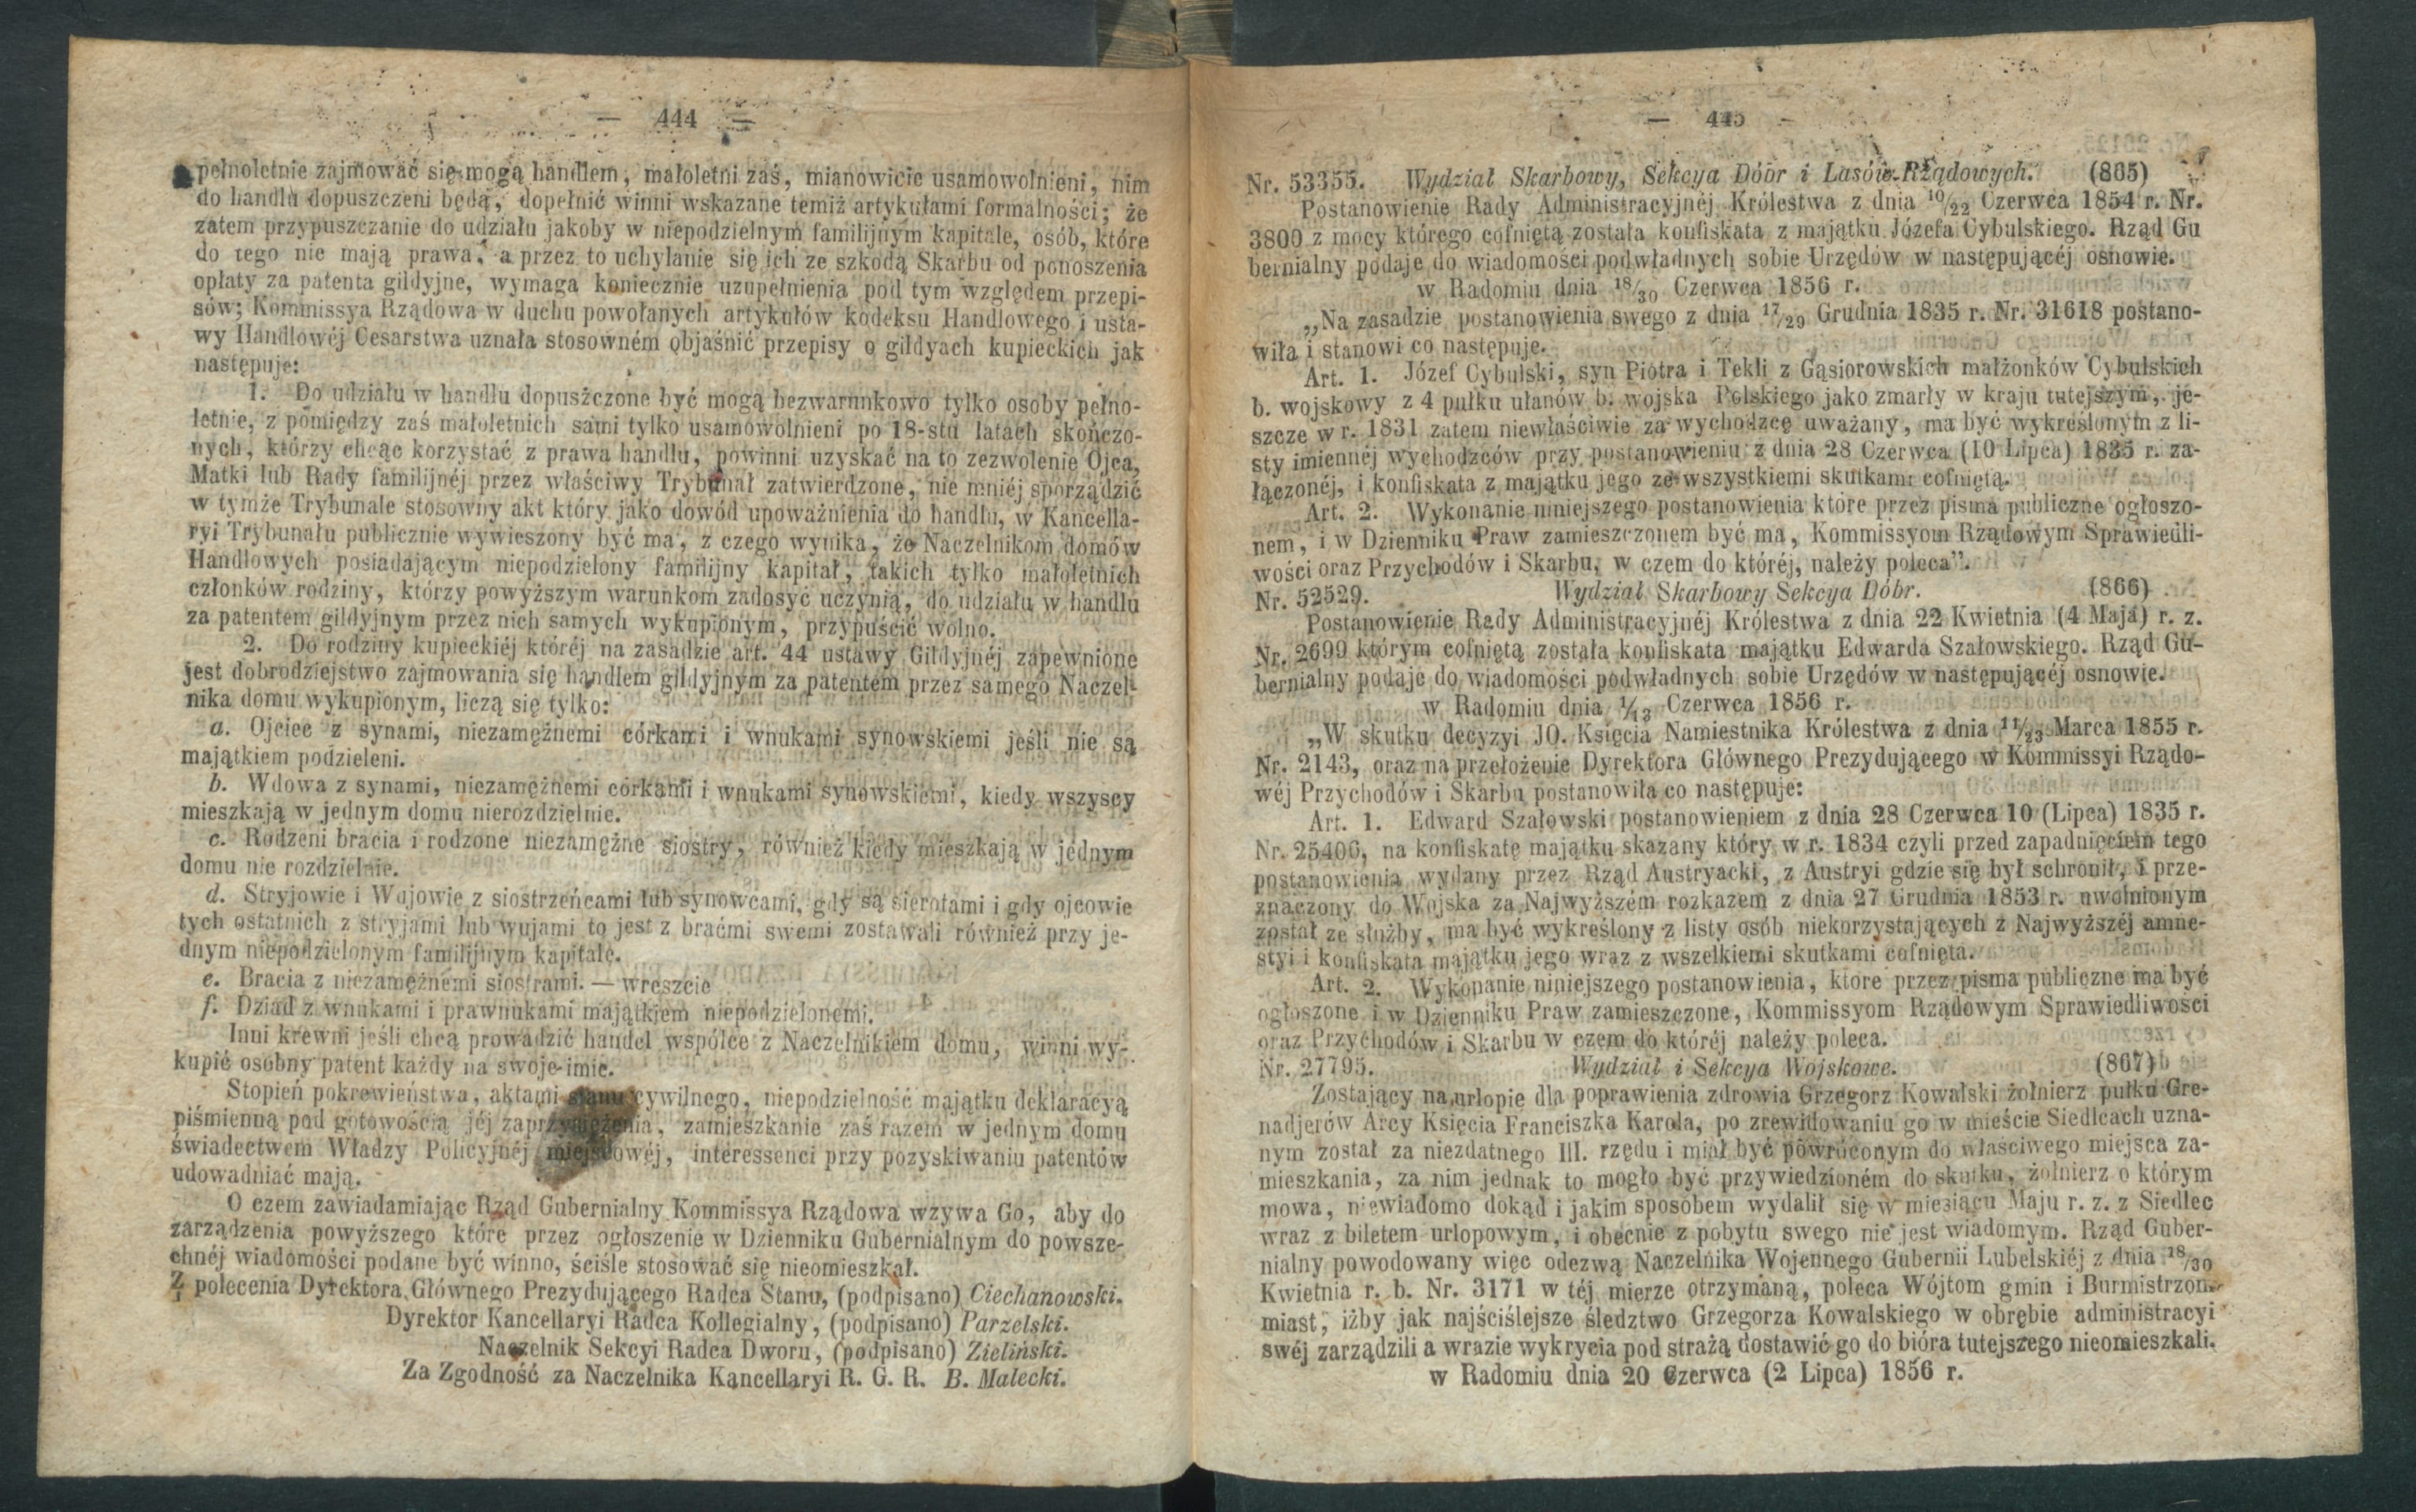 — 444 —
pełnoletnie zajmować się mogą handlem, małoletni zaś, mianowicie usamowolnieni, nim
do handlu dopuszczeni będą, dopełnić winni wskazane temiż artykułami formalności; że
zatem przypuszczanie do udziału jakoby w niepodzielnym familijnym kapitale, osób, które
do tego nie mają prawa, a przez to uchylanie się ich ze szkodą Skarbu od ponoszenia
opłaty za patenta gildyjne, wymaga koniecznie uzupełnienia pod tym względem przepi-
sów; Kommissya Rządowa w duchu powołanych artykułów kodeksu Handlowego i usta-
wy Handlowéj Cesarstwa uznała stosowném objaśnić przepisy o gildyach kupieckich jak
następuje:
1. Do udziału w handlu dopuszczone być mogą bezwarunkowo tylko osoby pełno-
letnie, z pomiędzy zaś małoletnich sami tylko usamowolnieni po 18-stu latach skończo-
nych, którzy chcąc korzystać z prawa handlu, powinni uzyskać na to zezwolenie Ojca,
Matki lub Rady familijnéj przez właściwy Trybunał zatwierdzone, nie mniéj sporządzić
w tymże Trybunale stosowny akt który jako dowód upoważnienia do handlu, w Kancella-
ryi Trybunału publicznie wywieszony być ma, z czego wynika, że Naczelnikom domów
Handlowych posiadającym niepodzielony familijny kapitał, takich tylko małoletnich
członków rodziny, którzy powyższym warunkom zadosyć uczynią, do udziału w handlu
za patentem gildyjnym przez nich samych wykupionym, przypuścić wolno.
2. Do rodziny kupieckiéj któréj na zasadzie art. 44 ustawy Gildyjnéj zapewnione
jest dobrodziejstwo zajmowania się handlem gildyjnym za patentem przez samego Naczel-
nika domu wykupionym, liczą się tylko:
a. Ojciec z synami, niezamężnemi córkami i wnukami synowskiemi jeśli nie są
majątkiem podzieleni.
b. Wdowa z synami, niezamężnemi córkami i wnukami synowskiemi, kiedy wszyscy
mieszkają w jednym domu nierozdzielnie.
c. Rodzeni bracia i rodzone niezamężne siostry, również kiedy mieszkają w jednym
domu nie rozdzielnie.
d. Stryjowie i Wujowie z siostrzeńcami lub synowcami, gdy są sierotami i gdy ojcowie
tych ostatnich z stryjami lub wujami to jest z braćmi swemi zostawali również przy je-
dnym niepodzielonym familijnym kapitale.
e. Bracia z niezamężnemi siostrami. — wreszcie
f. Dziad z wnukami i prawnukami majątkiem niepodzielonemi.
Inni krewni jeśli chcą prowadzić handel wspólce z Naczelnikiem domu, winni wy-
kupić osobny patent każdy na swoje imie.
Stopień pokrewieństwa, aktami stanu cywilnego, niepodzielność majątku deklaracyą
piśmienną pod gotowością jéj zaprzysiężenia, zamieszkanie zaś razem w jednym domu
świadectwem Władzy Policyjnéj miejscowéj, interessenci przy pozyskiwaniu patentów
udowadniać mają.
O czem zawiadamiając Rząd Gubernialny Kommissya Rządowa wzywa Go, aby do
zarządzenia powyższego które przez ogłoszenie w Dzienniku Gubernialnym do powsze-
chnéj wiadomości podane być winno, ściśle stosować się nieomieszkał.
Z polecenia Dyrektora Głównego Prezydującego Radca Stanu, (podpisano) Ciechanowski.
Dyrektor Kancellaryi Radca Kollegialny, (podpisano) Parzelski.
Naczelnik Sekcyi Radca Dworu, (podpisano) Zieliński.
Za Zgodność za Naczelnika Kancellaryi R. G. R. B. Malecki.
— 445 —
Nr. 53355. Wydział Skarbowy, Sekcya Dóbr i Lasów Rządowych. (865)
Postanowienie Rady Administracyjnéj Królestwa z dnia 10/22 Czerwca 1854 r. Nr.
3800 z mocy którego cofniętą została konfiskata z majątku Józefa Cybulskiego. Rząd Gu
bernialny podaje do wiadomości podwładnych sobie Urzędów w następującéj osnowie.
w Radomiu dnia 18/30 Czerwca 1856 r.
„Na zasadzie postanowienia swego z dnia 17/29 Grudnia 1835 r. Nr. 31618 postano-
wiła i stanowi co następuje.
Art. 1. Józef Cybulski, syn Piotra i Tekli z Gąsiorowskich małżonków Cybulskich
b. wojskowy z 4 pułku ułanów b. wojska Polskiego jako zmarły w kraju tutejszym, je-
szcze w r. 1831 zatem niewłaściwie za wychodzcę uważany, ma być wykreślonym z li-
sty imiennéj wychodzców przy postanowieniu z dnia 28 Czerwca (10 Lipca) 1835 r. za-
łączonéj, i konfiskata z majątku jego ze wszystkiemi skutkami cofniętą.
Art. 2. Wykonanie niniejszego postanowienia które przez pisma publiczne ogłoszo-
nem, i w Dzienniku Praw zamieszczonem być ma, Kommissyom Rządowym Sprawiedli-
wości oraz Przychodów i Skarbu, w czem do któréj, należy poleca”.
Nr. 52529. Wydział Skarbowy Sekcya Dóbr. (866)
Postanowienie Rady Administracyjnéj Królestwa z dnia 22 Kwietnia (4 Maja) r. z.
Nr. 2699 którym cofniętą została konfiskata majątku Edwarda Szałowskiego. Rząd Gu-
bernialny podaje do wiadomości podwładnych sobie Urzędów w następującéj osnowie.
w Radomiu dnia 1/13 Czerwca 1856 r.
„W skutku decyzyi JO. Księcia Namiestnika Królestwa z dnia 11/23 Marca 1855 r.
Nr. 2143, oraz na przełożenie Dyrektora Głównego Prezydującego w Kommissyi Rządo-
wéj Przychodów i Skarbu postanowiła co następuje:
Art. 1. Edward Szałowski postanowieniem z dnia 28 Czerwca 10 (Lipca) 1835 r.
Nr. 25406, na konfiskatę majątku skazany który w r. 1834 czyli przed zapadnięciem tego
postanowienia wydany przez Rząd Austryacki, z Austryi gdzie się był schronił, i prze-
znaczony do Wojska za Najwyższém rozkazem z dnia 27 Grudnia 1853 r. uwolnionym
został ze służby, ma być wykreślony z listy osób niekorzystających z Najwyższéj amne-
styi i konfiskata majątku jego wraz z wszelkiemi skutkami cofnięta.
Art. 2. Wykonanie niniejszego postanowienia, które przez pisma publiczne ma być
ogłoszone i w Dzienniku Praw zamieszczone, Kommissyom Rządowym Sprawiedliwości
oraz Przychodów i Skarbu w czem do któréj należy poleca.
Nr. 27795. Wydział i Sekcya Wojskowe. (867)
Zostający na urlopie dla poprawienia zdrowia Grzegorz Kowalski żołnierz pułku Gre-
nadjerów Arcy Księcia Franciszka Karola, po zrewidowaniu go w mieście Siedlcach uzna-
nym został za niezdatnego III. rzędu i miał być powróconym do właściwego miejsca za-
mieszkania, za nim jednak to mogło być przywiedzioném do skutku, żołnierz o którym
mowa, niewiadomo dokąd i jakim sposobem wydalił się w miesiącu Maju r. z. z Siedlec
wraz z biletem urlopowym, i obecnie z pobytu swego nie jest wiadomym. Rząd Guber-
nialny powodowany więc odezwą Naczelnika Wojennego Gubernii Lubelskiéj z dnia 18/30
Kwietnia r. b. Nr. 3171 w téj mierze otrzymaną, poleca Wójtom gmin i Burmistrzom
miast, iżby jak najściślejsze śledztwo Grzegorza Kowalskiego w obrębie administracyi
swéj zarządzili a wrazie wykrycia pod strażą dostawić go do bióra tutejszego nieomieszkali.
w Radomiu dnia 20 Czerwca (2 Lipca) 1856 r.